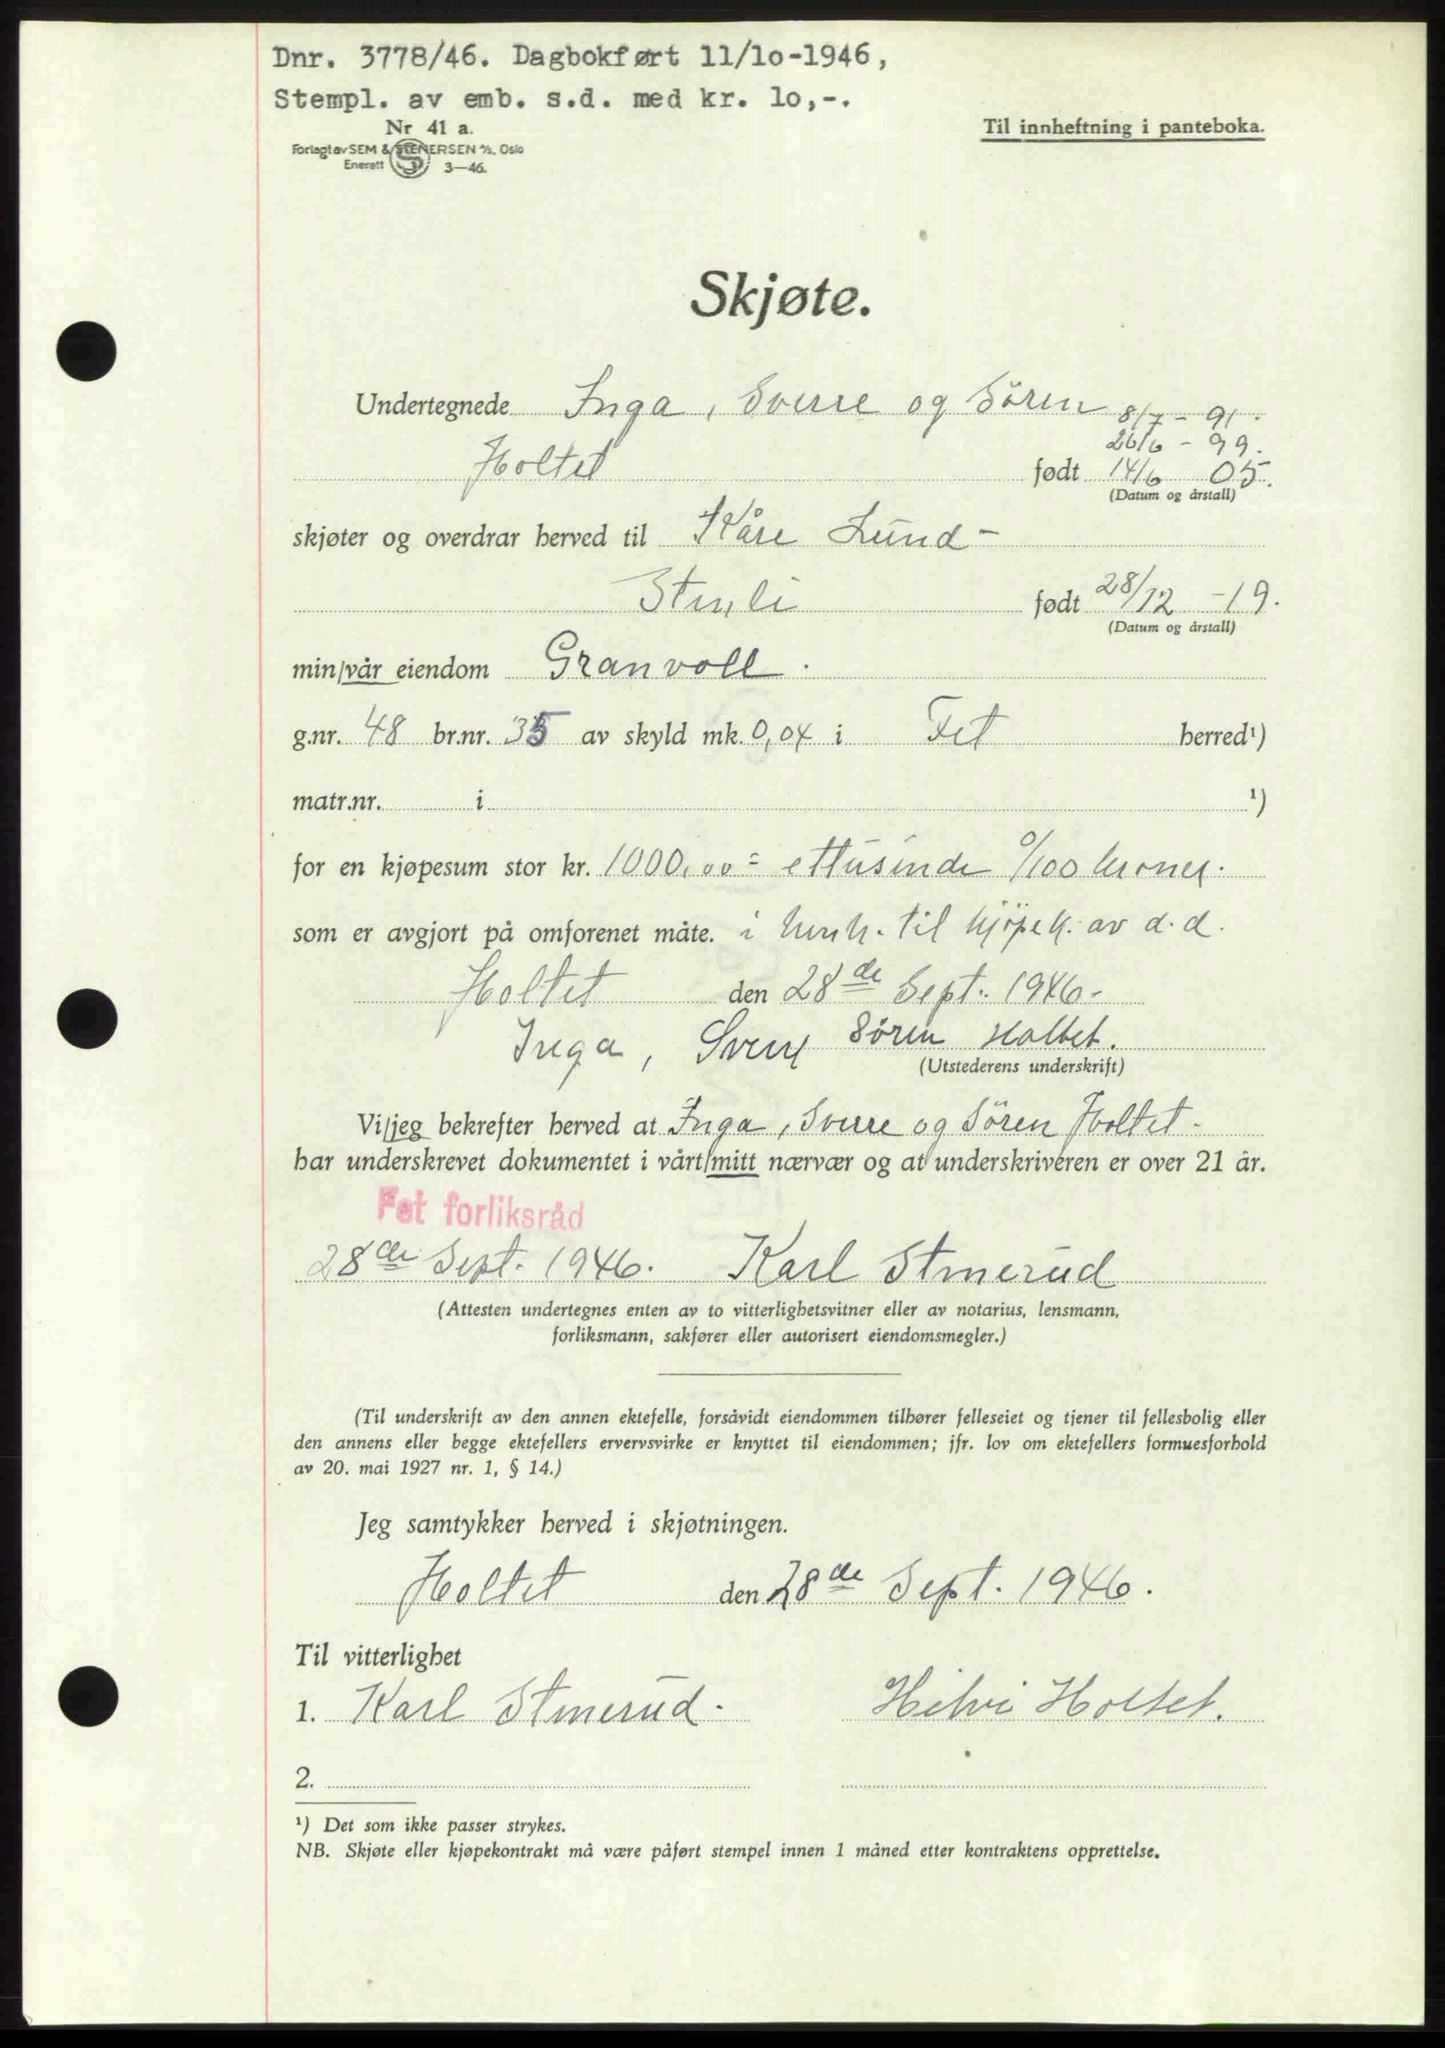 Dnr. 3778/46. Dagbokført 11/10-1946,
Stempl. av emb. s.d. med kr. 10,-.
Nr 41 a.
Forlagt av SEM & STENERSEN A/S, Oslo
Enerett 3—46.
Til innheftning i panteboka.
Skjøte.
Undertegnede Inga, Sverre og Sören 8/7 - 91.
26/6 - 99.
Holtet født 14/6 05.
(Datum og årstall)
skjøter og overdrar herved til Kåre Lund-
født 28/12 -19.
(Datum og årstall)
min/vår eiendom Granvoll.
g.nr. 48 br.nr. 35 av skyld mk. 0,04 i Fet herred¹)
matr.nr. i ¹)
for en kjøpesum stor kr. 1000,00 = ettusinde 0/100 kroner.
som er avgjort på omforenet måte. i henh. til kjöpek. av d.d.
Holtet den 28de Sept. 1946.
Inga, Sverre Sören Holtet.
(Utstederens underskrift)
Vi/jeg bekrefter herved at Inga, Sverre og Sören Holtet
har underskrevet dokumentet i vårt/mitt nærvær og at underskriveren er over 21 år.
Fet forliksråd
28de Sept. 1946. Karl
(Attesten undertegnes enten av to vitterlighetsvitner eller av notarius, lensmann,
forliksmann, sakfører eller autorisert eiendomsmegler.)
(Til underskrift av den annen ektefelle, forsåvidt eiendommen tilhører felleseiet og tjener til fellesbolig eller
den annens eller begge ektefellers ervervsvirke er knyttet til eiendommen; jfr. lov om ektefellers formuesforhold
av 20. mai 1927 nr. 1, § 14.)
Jeg samtykker herved i skjøtningen.
Holtet den 28de Sept. 1946.
Til vitterlighet
1. Karl Holtet.
2.
¹) Det som ikke passer strykes.
NB. Skjøte eller kjøpekontrakt må være påført stempel innen 1 måned etter kontraktens opprettelse.